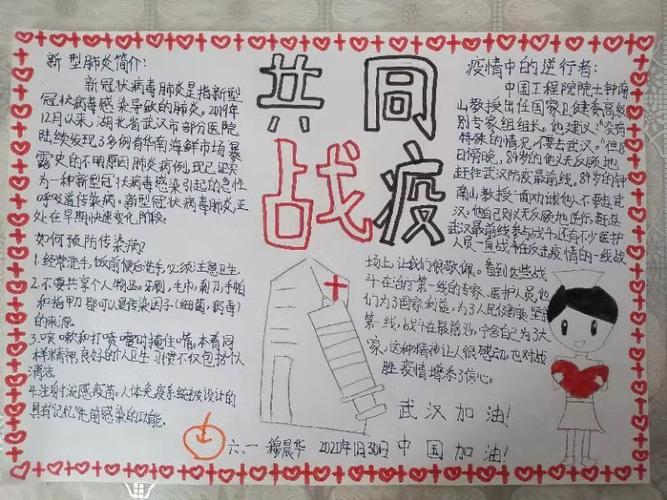 新型肺炎简介:
新冠状病毒肺炎是指新型
冠状病毒感染导致的肺炎。2019年
12月以来,湖北省武汉市部分医院
陆续发现3多例有华南海鲜市场暴
露史的不明原因肺炎病例,现已证实
为一种新型冠状病毒感染引起的急性
呼吸道传染病。新型冠状病毒肺炎正
处在早期快速变化阶段。
如何预防传染病?
1.经常洗手,饭前便后洗手,必须注意卫生。
2.不要共享个人物品。牙刷,毛巾,剃刀,手帕
和指甲刀都可以是传染因子(细菌,病毒)
的来源。
3.咳嗽和打喷嚏时掩住嘴。本着同
样精神,良好的个人卫生习惯不仅包括个人
清洁
4.注射流感疫苗。人体免疫系统被设计的
具有记忆先前感染的功能。
共同
战疫
疫情中的逆行者:
中国工程院院士钟南
山教授出任国家卫健委高级
别专家组组长。他建议:"没有
特殊的情况,不要去武汉。"但8
日傍晚,84岁的他义无反顾地
赶往武汉防疫最前线。84岁的钟
南山教授一面劝诫他人不要赴武
汉,他自己则义无反顾地逆行,赶赴
武汉最前线参与战斗还有不少医护
人员一直战斗在反击疫情的一线战
场上,让我们很敬佩。看到这些战
斗在治疗第一线的专家、医护人员他
们为了国家利益,为了人民健康,坚守
第一线,战斗在最前沿,宁舍自己为了大
家,这种精神让人很感动,也对战
胜疫情增添了信心。
武汉加油!
六.一 穆晨华 2020年1月30日 中国加油!